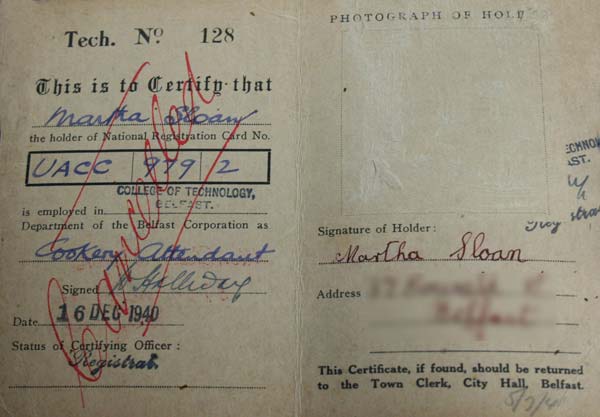 Tech. No 128
This is to Certify that
Martha Sloan
the holder of National Registration Card No.
UACC 979 2
COLLEGE OF TECHNOLOGY,
BELFAST.
is employed in
Department of the Belfast Corporation as
Cookery Attendant
Signed Holliday
Date 16 DEC 1940
Status of Certifying Officer :
Registrar.
Cancelled
PHOTOGRAPH OF HOLD
Signature of Holder :
Martha Sloan
Address
Belfast
This Certificate, if found, should be returned
to the Town Clerk, City Hall, Belfast.